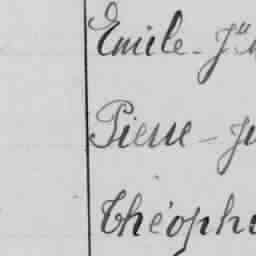 Emile - Jn
Pierre - Ju
Théophi